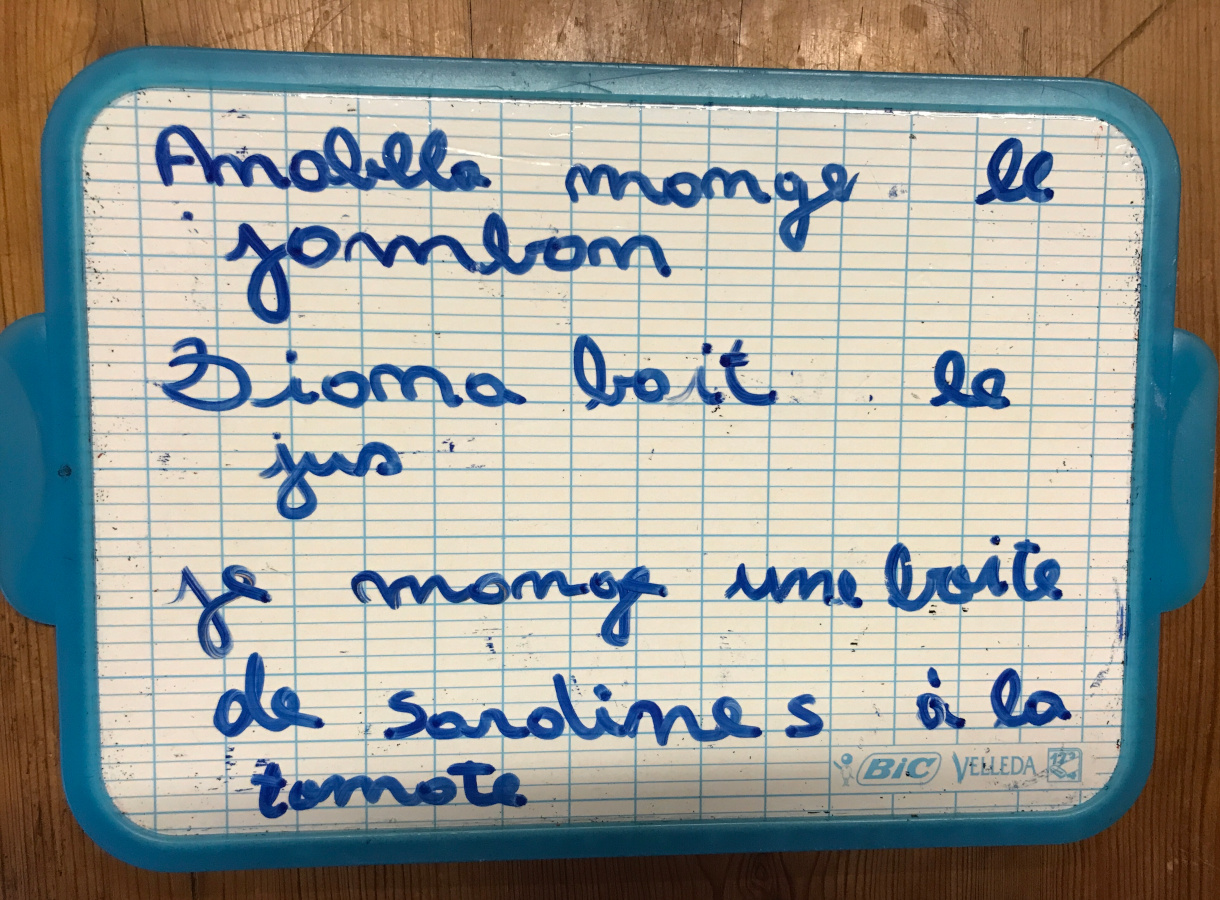 Anabella mange le
jambon
Bioma boit le
jus
je mange une boite
de sardines à la
tomate
BiC VELLEDA